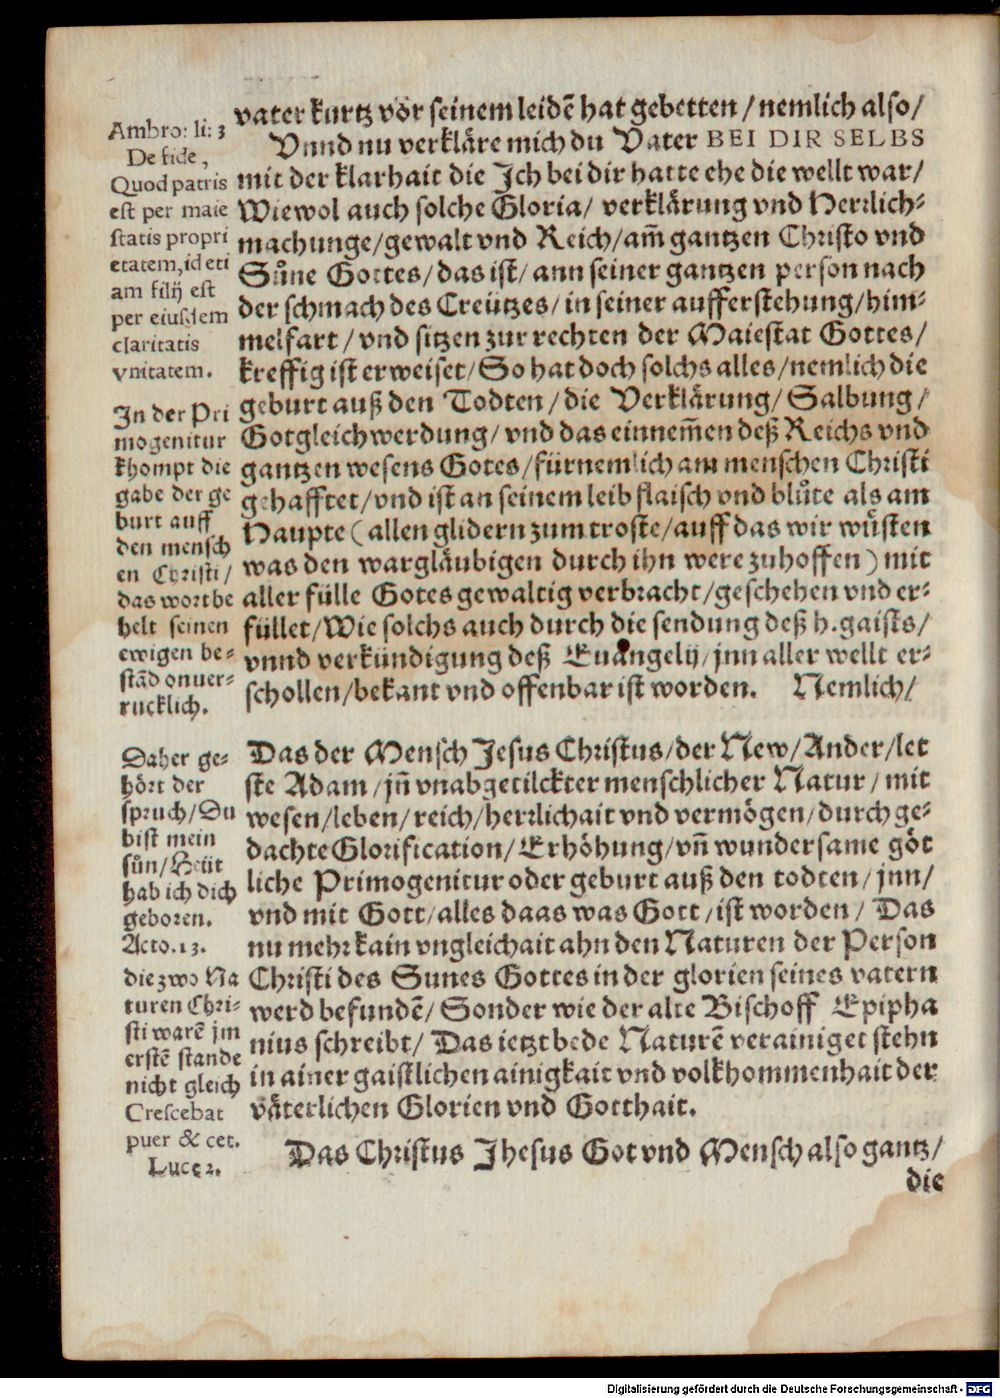 vater kurtz vor seinem leidē hat gebetten / nemlich also /
Vnnd nu verkläre mich du Vater BEI DIR SELBS
mit der klarhait die Ich bei dir hatte ehe die wellt war /
Wiewol auch solche Gloria / verklärung vnd Herrlich-
machunge / gewalt vnd Reich / am̄ gantzen Christo vnd
Sůne Gottes / das ist / ann seiner gantzen person nach
der schmach des Creützes / in seiner aufferstehung / him-
melfart / vnd sitzen zur rechten der Maiestat Gottes /
kreffig ist erweiset / So hat doch solchs alles / nemlich die
geburt auß den Todten / die Verklärung / Salbung /
Gotgleichwerdung / vnd das einnem̄en deß Reichs vnd
gantzen wesens Gotes / fürnemlich am menschen Christi
gehafftet / vnd ist an seinem leib flaisch vnd blůte als am
Haupte ( allen glidern zum troste / auff das wir wůsten
was den wargläubigen durch ihn were zuhoffen ) mit
aller fülle Gotes gewaltig verbracht / geschehen vnd er-
füllet / Wie solchs auch durch die sendung deß h. gaists /
vnnd verkündigung deß Euangelij / jnn aller wellt er-
schollen / bekant vnd offenbar ist worden. Nemlich /
Das der Mensch Jesus Christus / der New / Ander / let
ste Adam / jn̄ vnabgetilckter menschlicher Natur / mit
wesen / leben / reich / herrlichait vnd vermögen / durch ge-
dachte Glorification / Erhöhung / vn̄ wundersame göt
liche Primogenitur oder geburt auß den todten / jnn /
vnd mit Gott / alles daas was Gott / ist worden / Das
nu mehr kain vngleichait ahn den Naturen der Person
Christi des Sunes Gottes in der glorien seines vatern
werd befundē / Sonder wie der alte Bischoff Epipha
nius schreibt / Das ietzt bede Naturē verainiget stehn
in ainer gaistlichen ainigkait vnd volkhommenhait der
väterlichen Glorien vnd Gotthait.
Das Christus Jhesus Got vnd Mensch also gantz /
die
Ambro: li: 3
De fide,
Quod patris
est per maie
statis propri
etatem, id eti
am filij est
per eiusdem
claritatis
vnitatem.
In der Pri
mogenitur
khompt die
gabe der ge
burt auff
den mensch
en Christi /
das wort be
helt seinen
ewigen be-
stād onuer-
rucklich.
Daher ge-
hört der
spruch / Du
bist mein
sůn / Heüt
hab ich dich
geboren.
Acto. 13.
die zwo Na
turen Chri-
sti warē jm
erstē stande
nicht gleich
Crescebat
puer & cet.
Lucę 2.
Digitalisierung gefördert durch die Deutsche Forschungsgemeinschaft - DFG